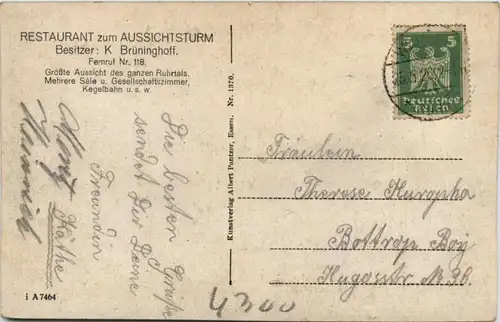 RESTAURANT zum AUSSICHTSTURM
Besitzer: K Brüninghoff.
Fernruf Nr. 118.
Größte Aussicht des ganzen Ruhrtals.
Mehrere Säle u. Gesellschaftszimmer,
Kegelbahn u. s. w.
Die besten Grüße
sendet Dir Deine
Freundin
Käthe
i A7464
Kunstverlag Albert Pantzer, Essen. Nr. 1370.
5 5
Deutsches
Reich
Fräulein
Therese Kuropka
Bottrop Boy
Hugostr N.
4300